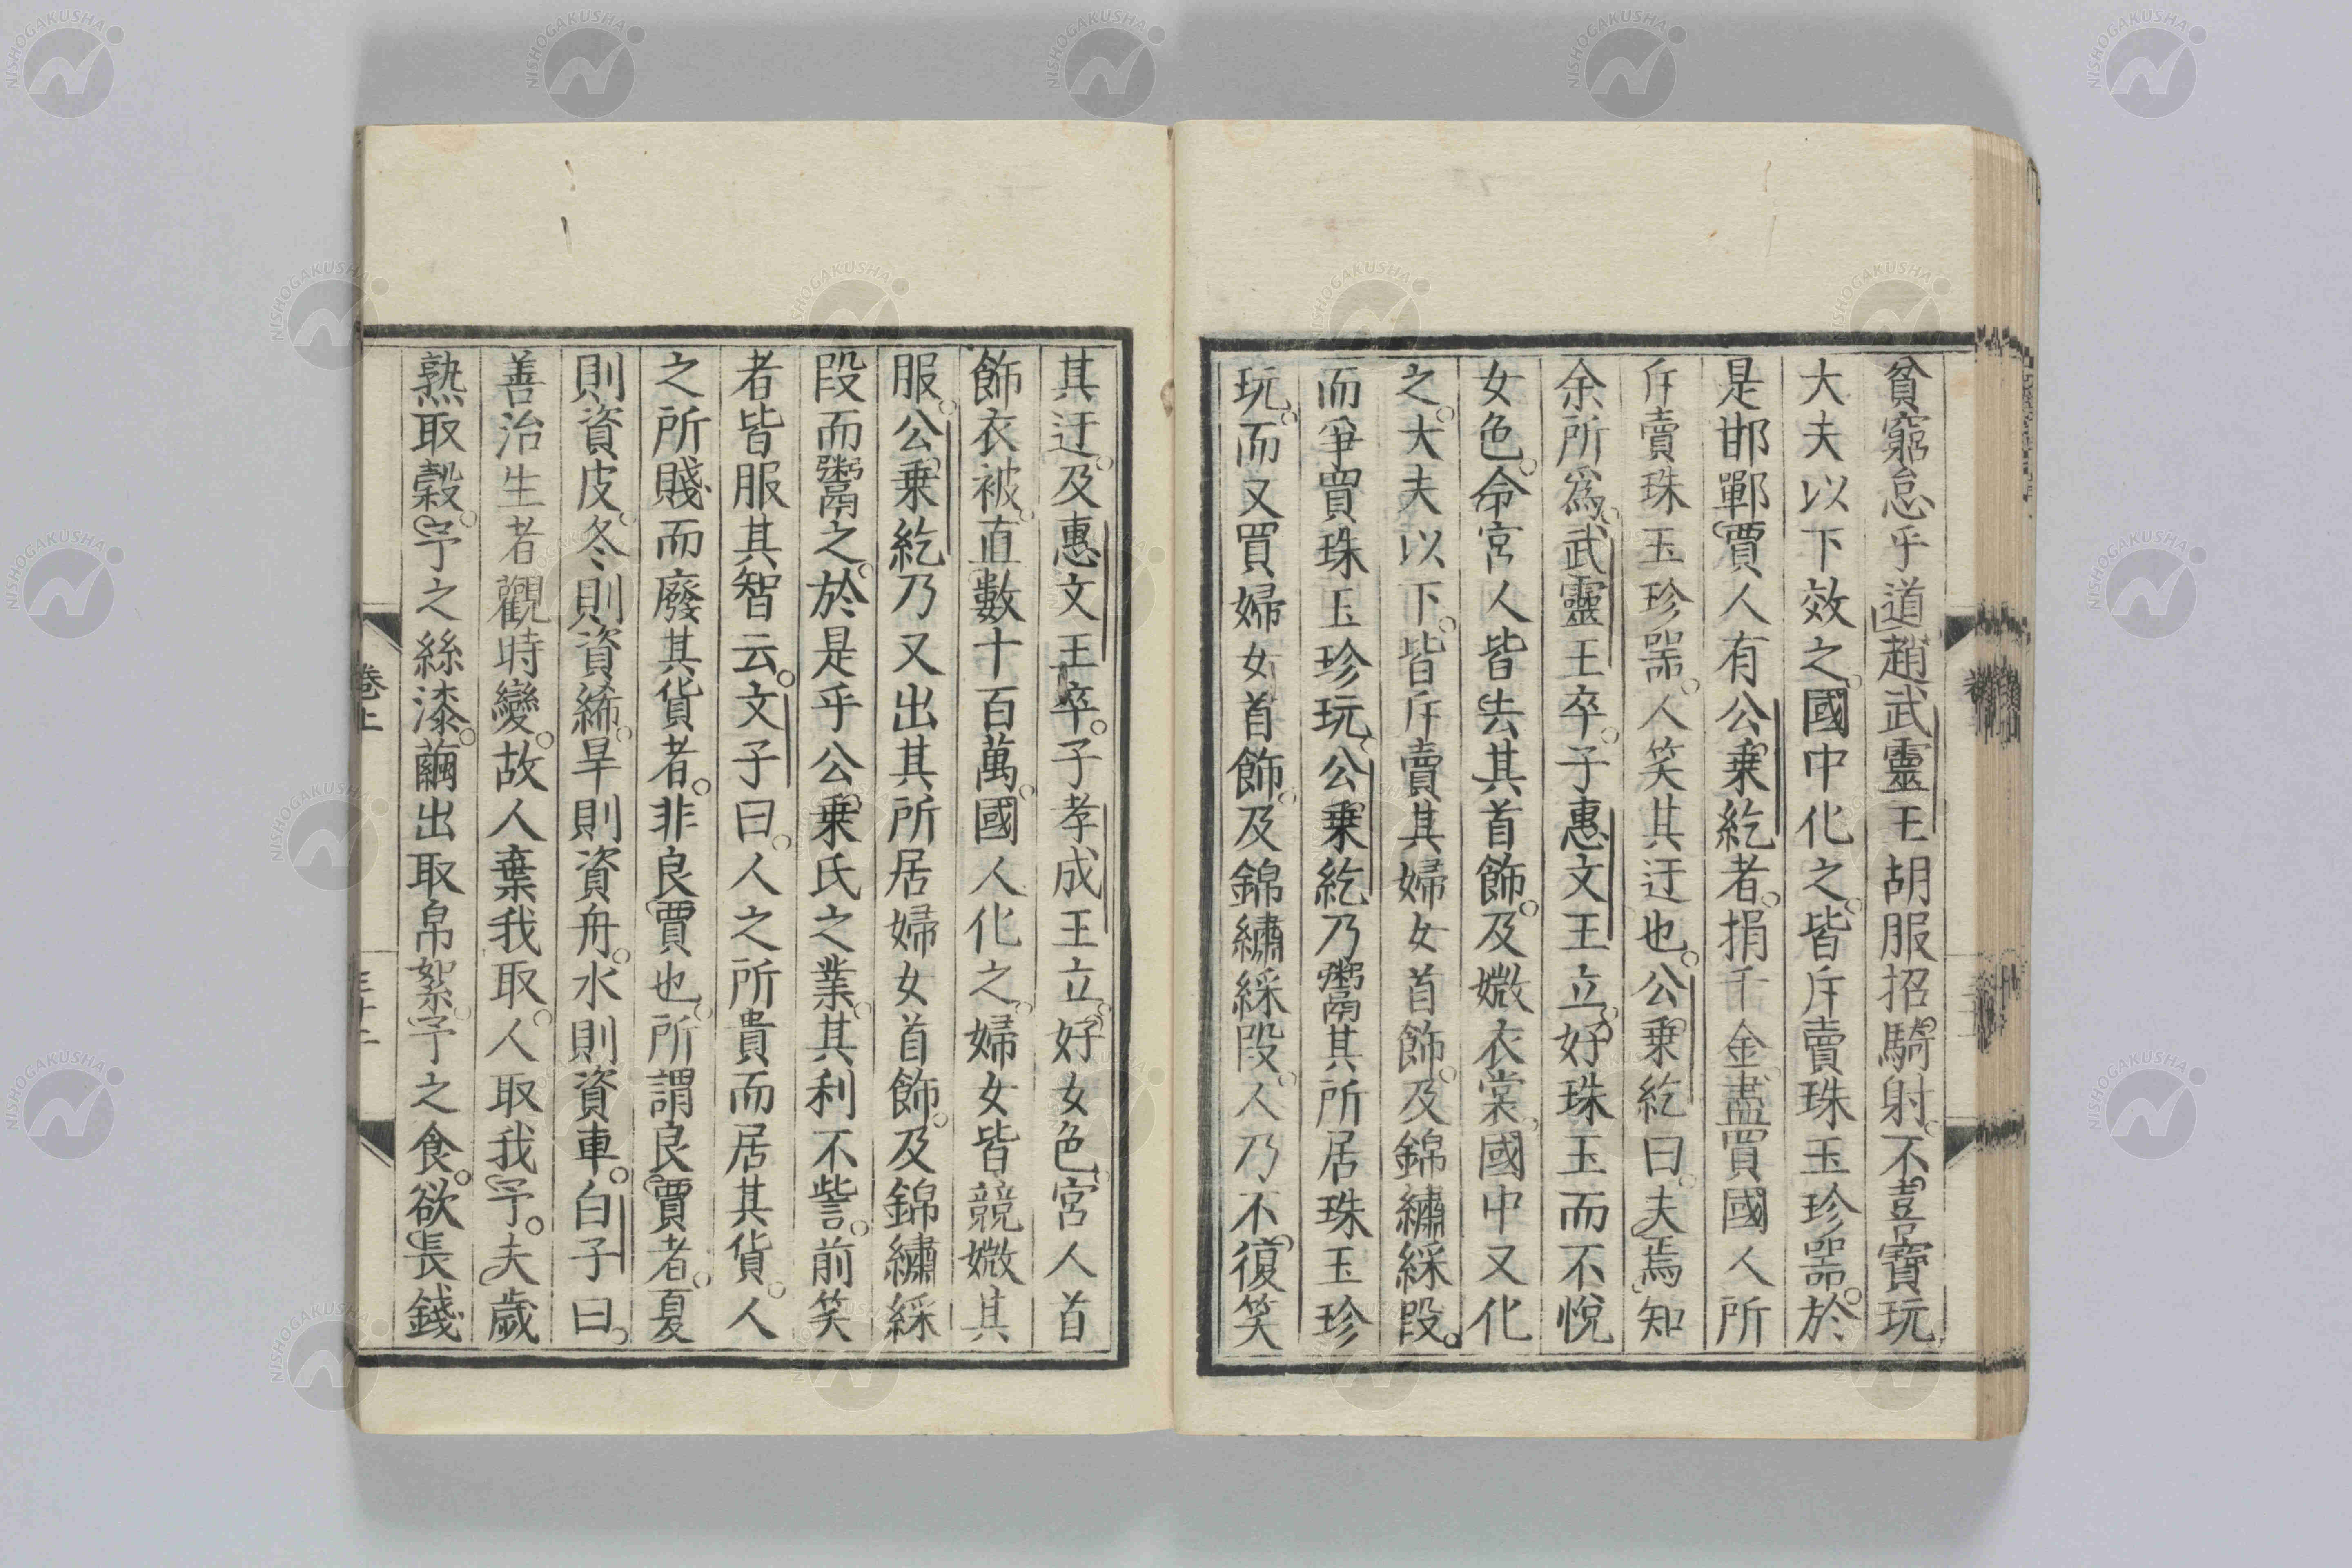 貧窮怠乎道趙武靈王胡服招騎射不喜寶玩
大夫以下效之國中化之皆斥賣珠玉珍器於
是邯鄲賈人有公乗紇者捐千金盡買國人所
斥賣珠玉珍器人笑其迂也公乗紇曰夫焉知
余所爲武靈王卒子惠文王立好珠玉而不悅
女色命宮人皆去其首飾及媺衣裳國中又化
之大夫以下皆斥賣其婦女首飾及錦繡綵段
而爭買珠玉珍玩公乗紇乃鬻其所居珠玉珍
玩而又買婦女首飾及錦繡綵段人乃不復笑
其迂及惠文王卒子孝成王立好女色宮人首
飾衣被直數十百萬國人化之婦女皆競媺其
服公乗紇乃又出其所居婦女首飾及錦繡綵
段而鬻之於是乎公乗氏之業其利不訾前笑
者皆服其智云文子曰人之所貴而居其貨人
之所賤而廢其貨者非良賈也所謂良賈者夏
則資皮冬則資絺旱則資舟水則資車白子曰
善治生者觀時變故人棄我取人取我予夫歲
熟取穀予之絲漆繭出取帛絮予之食欲長錢
卷上
NISHOGAKUSHA